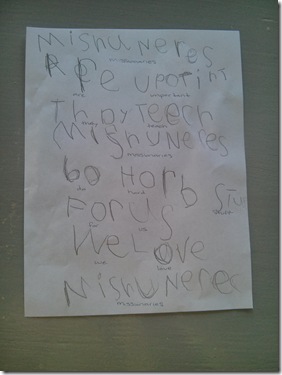 MishuNeRes
missionaries
RRe UPOTiNT
are important
ThayTeech
they teach
MishuNeRes
missionaries
bo HoRb STuf
do hard stuff
FoR US
for us
We Love
we love
MishUNeRec
missionaries